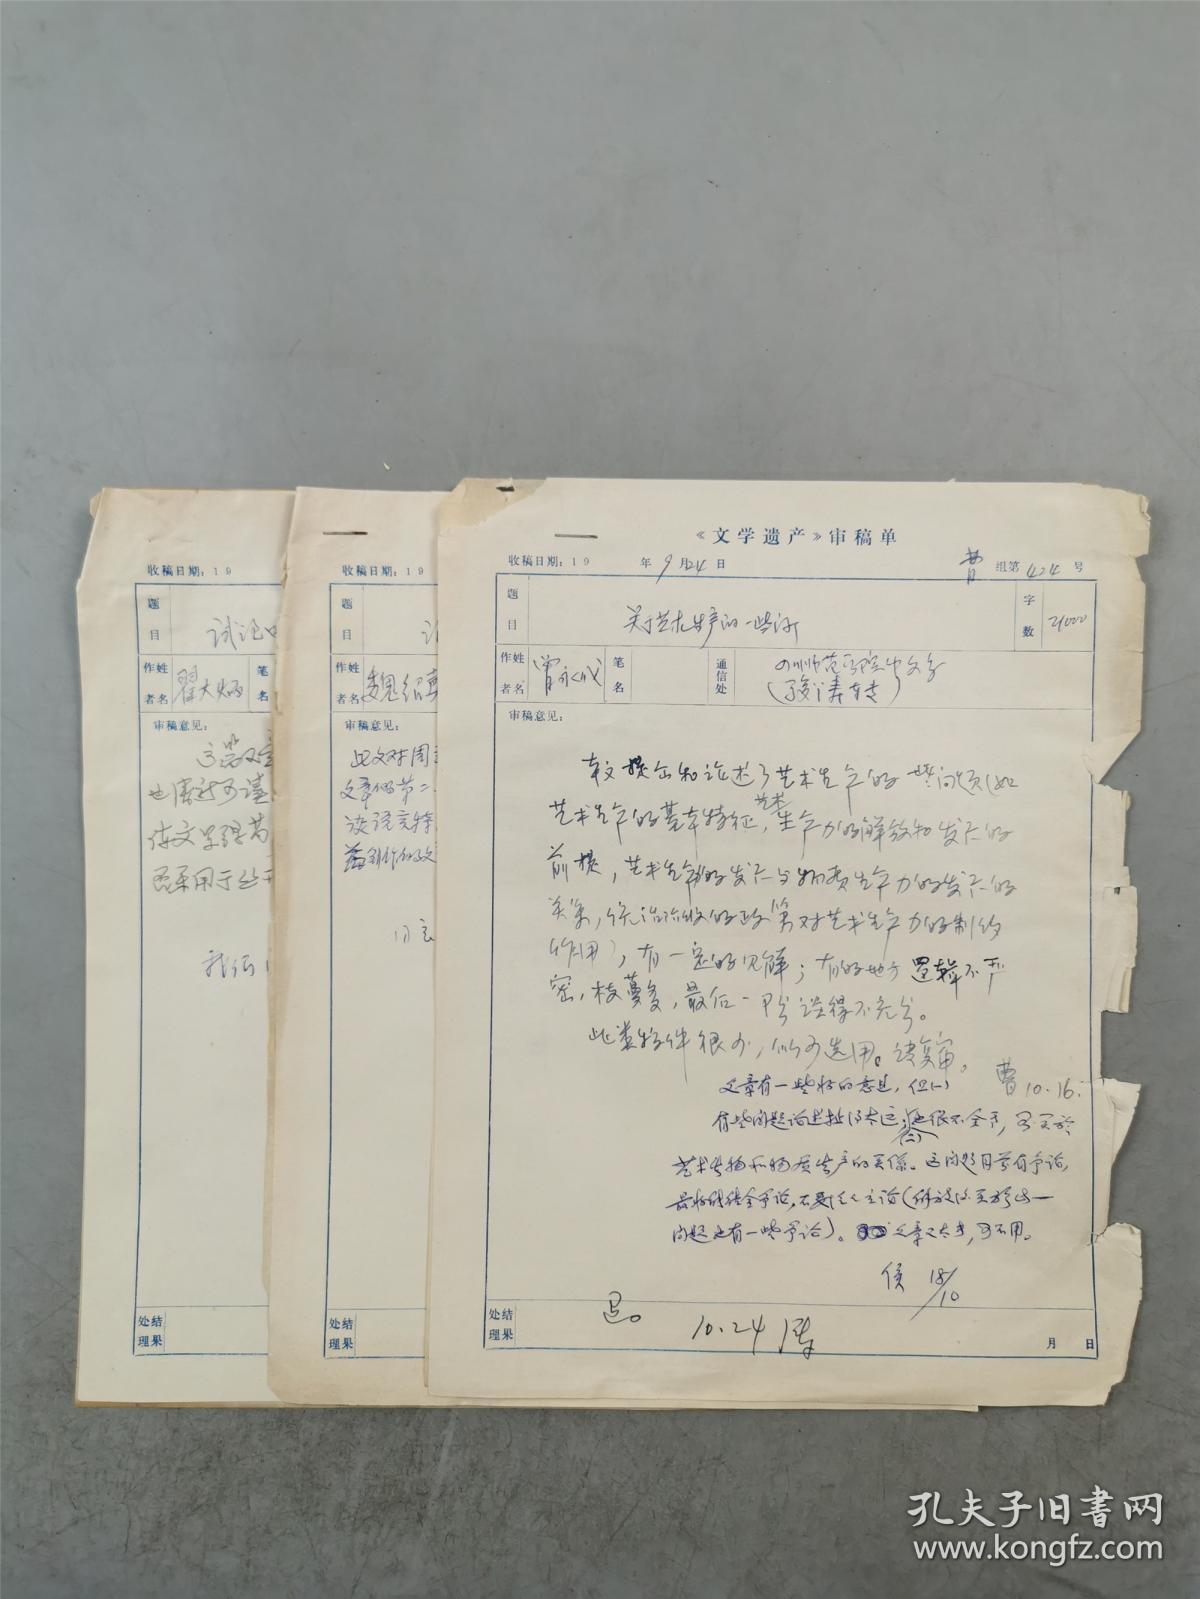 收稿日期：19
题
目
试论
作者
姓名
翟大炳
笔名
审稿意见：
我仍
处理
结果
收稿日期：19
题
目
作者
姓名
魏绍
审稿意见：
此文对周
文章的第二
谈语言特
处理
结果
《文学遗产》审稿单
收稿日期：19 年9月24日 曹 组第424号
题
目
关于艺术生产的一些
字
数
21000
作者
姓名
曾永成
笔名
通信处
四川师范学院中文系
审稿意见：
本文提出和论述了艺术生产的一些问题（如
艺术生产的基本特征，艺术生产力的解放和发展的
前提，艺术生产的发展与物质生产力的发展的
关系，统治阶级的政策对艺术生产力的制约
作用），有一定的见解；有的地方逻辑不严
密，枝蔓多，最后一部分谈得不充分。
此类稿件很少，似可选用。请复审。
曹 10.16.
文章有一些好的意见，但(一)
有些问题论述扯得太远，也很不全面，如关于
艺术生产和物质生产的关系。这问题目前有争论，
问题也有一些争论）。文章又太长，可不用。
侯 18/10
处理
结果
退。
10.24
月 日
孔夫子旧书网
www.kongfz.com